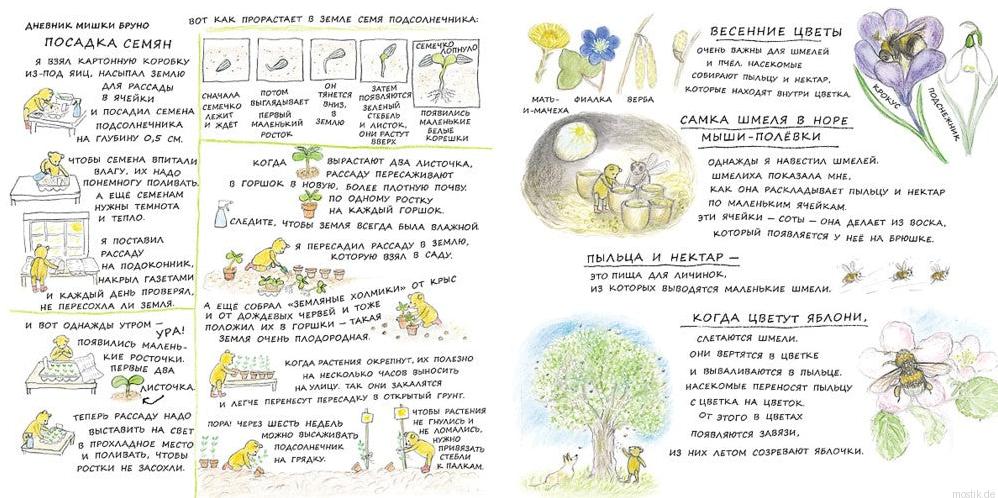 ДНЕВНИК МИШКИ БРУНО
ПОСАДКА СЕМЯН
Я ВЗЯЛ КАРТОННУЮ КОРОБКУ
ИЗ-ПОД ЯИЦ, НАСЫПАЛ ЗЕМЛЮ
ДЛЯ РАССАДЫ
В ЯЧЕЙКИ
И ПОСАДИЛ СЕМЕНА
ПОДСОЛНЕЧНИКА
НА ГЛУБИНУ 0,5 СМ.
ЧТОБЫ СЕМЕНА ВПИТАЛИ
ВЛАГУ, ИХ НАДО
ПОНЕМНОГУ ПОЛИВАТЬ.
А ЕЩЁ СЕМЕНАМ
НУЖНЫ ТЕМНОТА
И ТЕПЛО.
Я ПОСТАВИЛ
РАССАДУ
НА ПОДОКОННИК,
НАКРЫЛ ГАЗЕТАМИ
И КАЖДЫЙ ДЕНЬ ПРОВЕРЯЛ,
НЕ ПЕРЕСОХЛА ЛИ ЗЕМЛЯ.
И ВОТ ОДНАЖДЫ УТРОМ –
УРА!
ПОЯВИЛИСЬ МАЛЕНЬ-
КИЕ РОСТОЧКИ.
ПЕРВЫЕ ДВА
ЛИСТОЧКА.
ТЕПЕРЬ РАССАДУ НАДО
ВЫСТАВИТЬ НА СВЕТ
В ПРОХЛАДНОЕ МЕСТО
И ПОЛИВАТЬ, ЧТОБЫ
РОСТКИ НЕ ЗАСОХЛИ.
ВОТ КАК ПРОРАСТАЕТ В ЗЕМЛЕ СЕМЯ ПОДСОЛНЕЧНИКА:
СНАЧАЛА
СЕМЕЧКО
ЛЕЖИТ
И ЖДЕТ
ПОТОМ
ВЫГЛЯДЫВАЕТ
ПЕРВЫЙ
МАЛЕНЬКИЙ
РОСТОК
ОН
ТЯНЕТСЯ
ВНИЗ,
В
ЗЕМЛЮ
ЗАТЕМ
ПОЯВЛЯЮТСЯ
ЗЕЛЕНЫЙ
СТЕБЕЛЬ
И ЛИСТОК,
ОНИ РАСТУТ
ВВЕРХ
СЕМЕЧКО
ЛОПНУЛО
ПОЯВИЛИСЬ
МАЛЕНЬКИЕ
БЕЛЫЕ
КОРЕШКИ
КОГДА ВЫРАСТАЮТ ДВА ЛИСТОЧКА,
РАССАДУ ПЕРЕСАЖИВАЮТ
В ГОРШОК В НОВУЮ, БОЛЕЕ ПЛОТНУЮ ПОЧВУ.
ПО ОДНОМУ РОСТКУ
НА КАЖДЫЙ ГОРШОК.
СЛЕДИТЕ, ЧТОБЫ ЗЕМЛЯ ВСЕГДА БЫЛА ВЛАЖНОЙ.
Я ПЕРЕСАДИЛ РАССАДУ В ЗЕМЛЮ,
КОТОРУЮ ВЗЯЛ В САДУ.
А ЕЩЁ СОБРАЛ «ЗЕМЛЯНЫЕ ХОЛМИКИ» ОТ КРЫС
И ОТ ДОЖДЕВЫХ ЧЕРВЕЙ И ТОЖЕ
ПОЛОЖИЛ ИХ В ГОРШКИ – ТАКАЯ
ЗЕМЛЯ ОЧЕНЬ ПЛОДОРОДНАЯ.
КОГДА РАСТЕНИЯ ОКРЕПНУТ, ИХ ПОЛЕЗНО
НА НЕСКОЛЬКО ЧАСОВ ВЫНОСИТЬ
НА УЛИЦУ. ТАК ОНИ ЗАКАЛЯТСЯ
И ЛЕГЧЕ ПЕРЕНЕСУТ ПЕРЕСАДКУ В ОТКРЫТЫЙ ГРУНТ.
ПОРА! ЧЕРЕЗ ШЕСТЬ НЕДЕЛЬ
МОЖНО ВЫСАЖИВАТЬ
ПОДСОЛНЕЧНИК
НА ГРЯДКУ.
ЧТОБЫ РАСТЕНИЯ
НЕ ГНУЛИСЬ И
НЕ ЛОМАЛИСЬ,
НУЖНО
ПРИВЯЗАТЬ
СТЕБЛИ
К ПАЛКАМ.
МАТЬ-
И-МАЧЕХА
ФИАЛКА
ВЕРБА
ВЕСЕННИЕ ЦВЕТЫ
ОЧЕНЬ ВАЖНЫ ДЛЯ ШМЕЛЕЙ
И ПЧЕЛ. НАСЕКОМЫЕ
СОБИРАЮТ ПЫЛЬЦУ И НЕКТАР,
КОТОРЫЕ НАХОДЯТ ВНУТРИ ЦВЕТКА.
КРОКУС
ПОДСНЕЖНИК
САМКА ШМЕЛЯ В НОРЕ
МЫШИ-ПОЛЁВКИ
ОДНАЖДЫ Я НАВЕСТИЛ ШМЕЛЕЙ.
ШМЕЛИХА ПОКАЗАЛА МНЕ,
КАК ОНА РАСКЛАДЫВАЕТ ПЫЛЬЦУ И НЕКТАР
ПО МАЛЕНЬКИМ ЯЧЕЙКАМ.
ЭТИ ЯЧЕЙКИ – СОТЫ – ОНА ДЕЛАЕТ ИЗ ВОСКА,
КОТОРЫЙ ПОЯВЛЯЕТСЯ У НЕЁ НА БРЮШКЕ.
ПЫЛЬЦА И НЕКТАР –
ЭТО ПИЩА ДЛЯ ЛИЧИНОК,
ИЗ КОТОРЫХ ВЫВОДЯТСЯ МАЛЕНЬКИЕ ШМЕЛИ.
КОГДА ЦВЕТУТ ЯБЛОНИ,
СЛЕТАЮТСЯ ШМЕЛИ.
ОНИ ВЕРТЯТСЯ В ЦВЕТКЕ
И ВЫВАЛИВАЮТСЯ В ПЫЛЬЦЕ.
НАСЕКОМЫЕ ПЕРЕНОСЯТ ПЫЛЬЦУ
С ЦВЕТКА НА ЦВЕТОК.
ОТ ЭТОГО В ЦВЕТАХ
ПОЯВЛЯЮТСЯ ЗАВЯЗИ,
ИЗ НИХ ЛЕТОМ СОЗРЕВАЮТ ЯБЛОЧКИ.
mostik.de